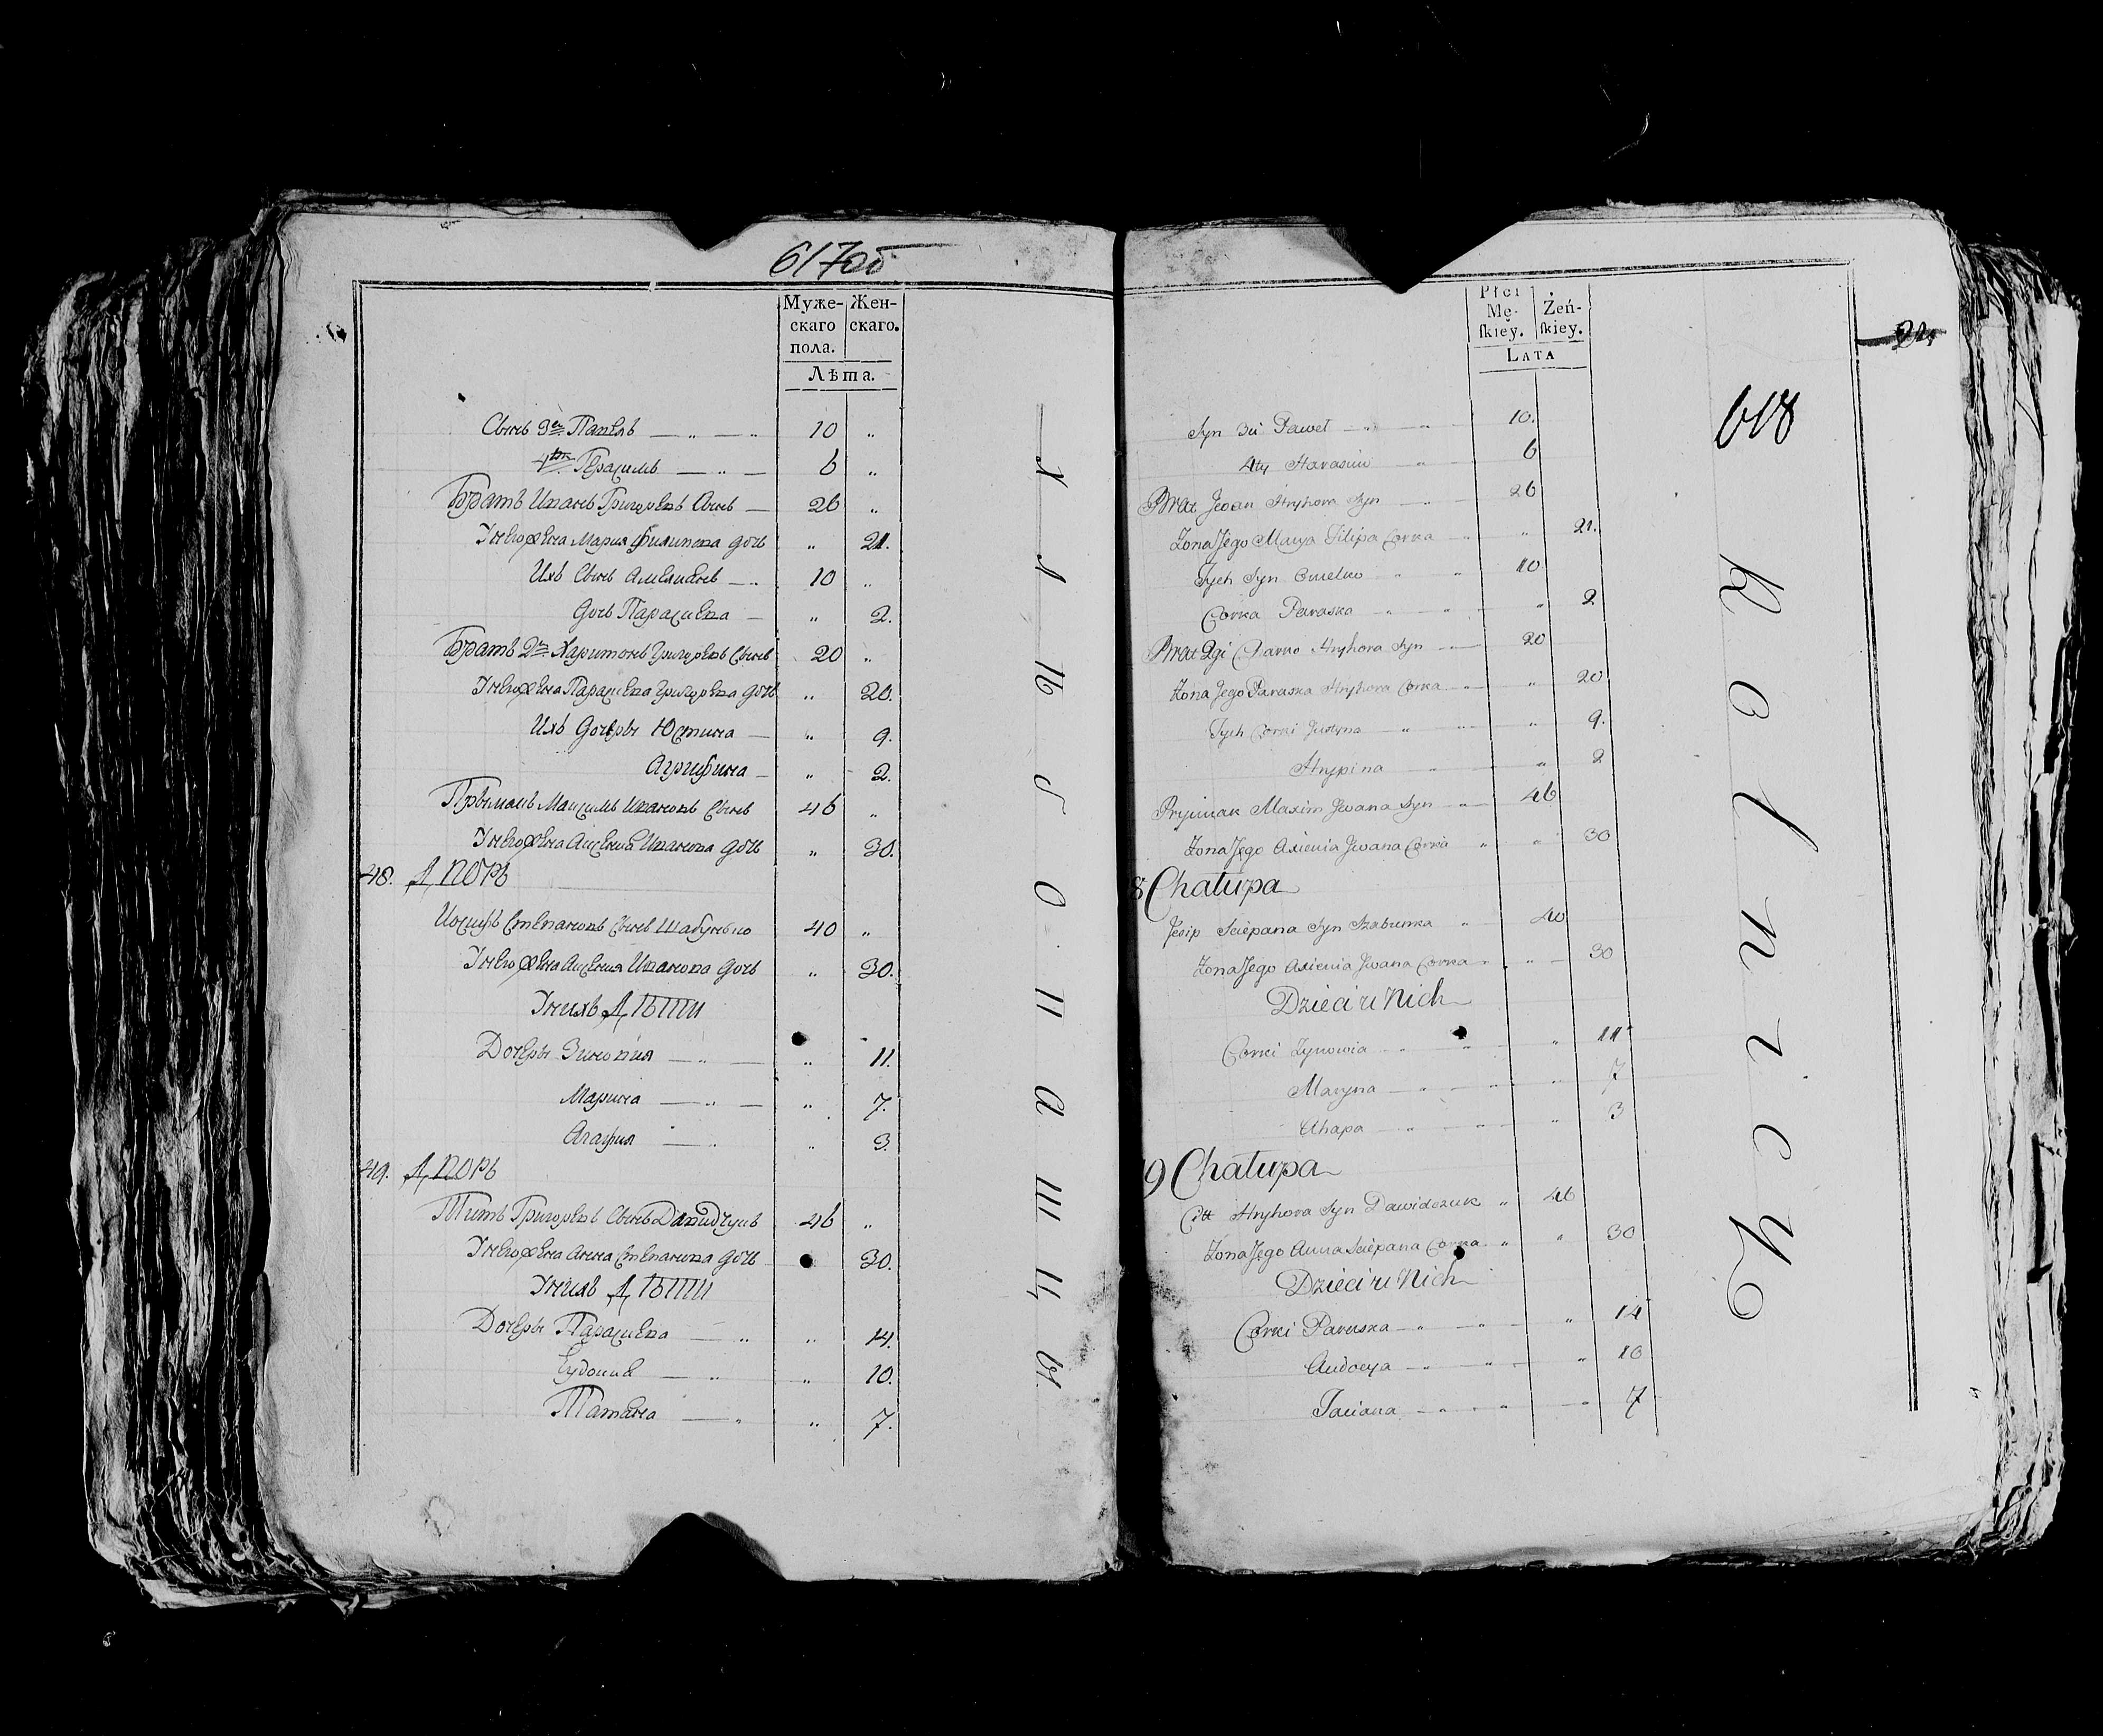 617об
Муже-
скаго
пола.
Жен-
скаго.
Лѣта.
Сынъ 3й Павелъ 10 "
4тый Герасимъ 6 "
Братъ Иванъ Григоревъ Сынъ 26 "
Унегожена Мария Филипова дочь " 21.
Ихъ Сынъ Амельянъ 10 "
Дочь Парасцева " 2.
Братъ 2й Харитонъ Григоревъ Сынъ 20 "
Унегожена Парасцева Григорева дочь " 20.
Ихъ Дочеры Юстина " 9.
Агрифина " 2.
Прыймакъ Максимъ Ивановъ Сынъ 46 "
Унегожена Аксения Иванова дочь " 30.
48. Дворъ
Иосифъ Степановъ Сынъ Шабунько 40 "
Унегожена Аксения Иванова дочь " 30.
Унихъ Дѣти
Дочеры Зиновия " 11.
Марина " 7.
Агафия " 3.
49. Дворъ
Титъ Григоревъ Сынъ Давидчукъ 46 "
Унегожена Анна Степанова дочь 30.
Унихъ Дѣти
Дочеры Парасцева " 14.
Еудокия " 10.
Татяна " 7.
Хлѣбопашцы
Płci
Mę-
ſkiey.
Żeń-
ſkiey.
Lata
22
618
Syn 3ci Paweł 10.
4ty Harasim 6
Brat Jwan Hryhora Syn 26
Żona Jego Marya Filipa Corka " 21.
Tych Syn Omelko 10
Corka Paraska " 2.
Brat 2gi Charko Hryhora Syn 20
Żona Jego Paraska Hryhora Corka " 20
Tych Corki Justyna " 9.
Hrypina " 2
Pryimak Maxim Jwana Syn 46
Żona Jego Axienia Jwana Corka " 30
8 Chałupa
Josip Sciepana Syn Szabunka 40
Żona Jego Axienia Jwana Corka " 30
Dzieci u Nich
Corki Zynowia " 11
Maryna " 7
Ahapa " 3
9 Chałupa
Citt Hryhora Syn Dawidczuk 46
Żona Jego Anna Sciepana Corka " 30
Dzieci u Nich
Corki Paruska " 14
Audocya " 10
Taciana " 7
Rolnicy